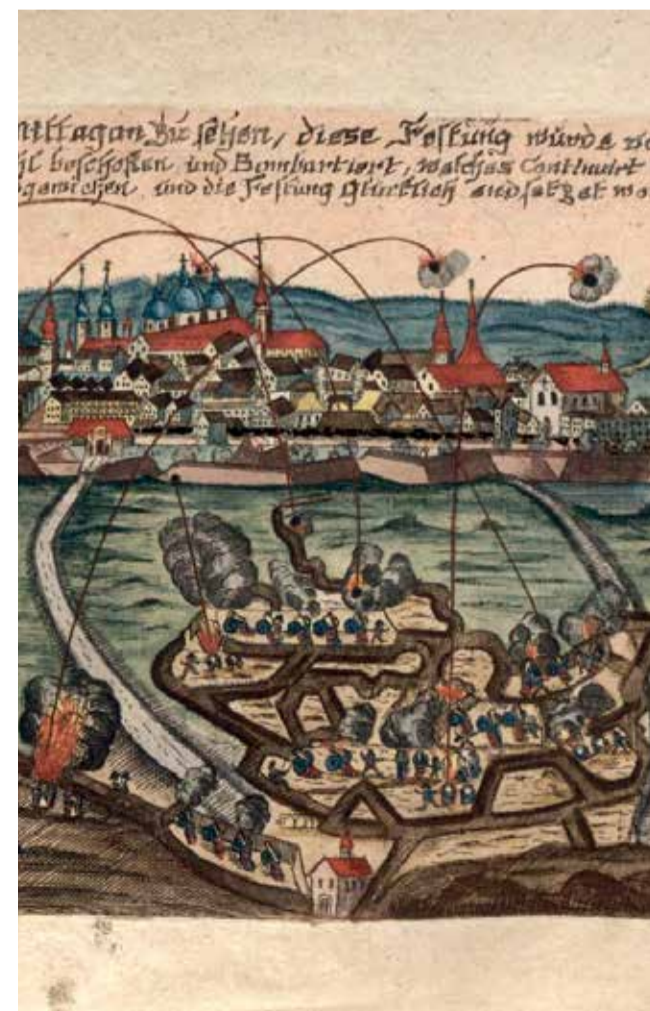 Mittagan zu sehen, diese Festung würde vo
il beschossen und Bombartiert, welches Continuirt
gewichen und die Festung Glücklich endsetzet wo